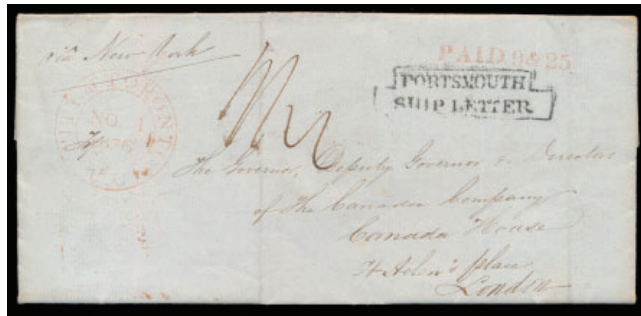 via New York
PAID 9 & 25
PORTSMOUTH
SHIP LETTER
CITY OF TORONTO
NO 1
1836
U.C
To
The Governor, Deputy Governor & Directors
of the Canada Company
Canada House
St Helen's place
London